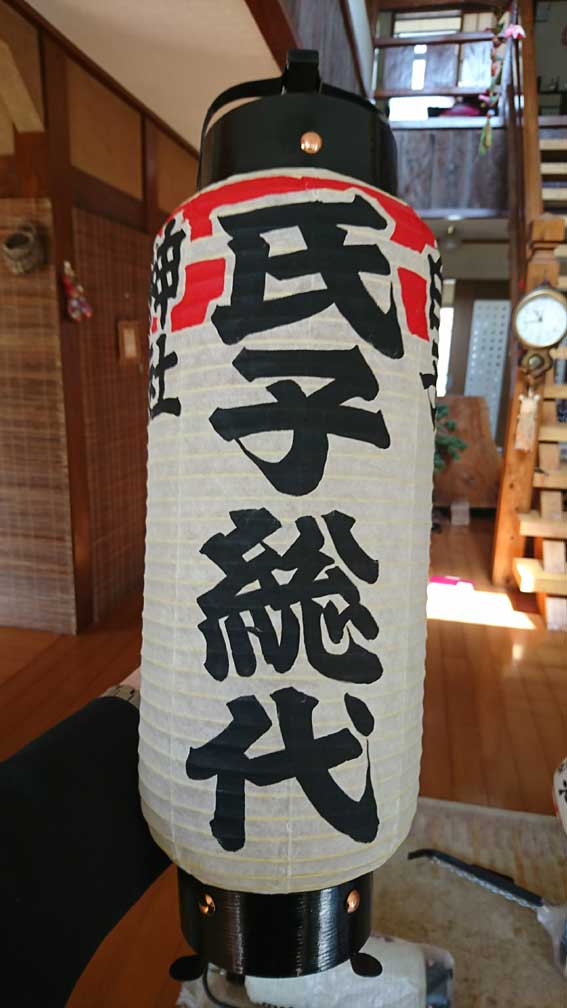 氏子総代
神社